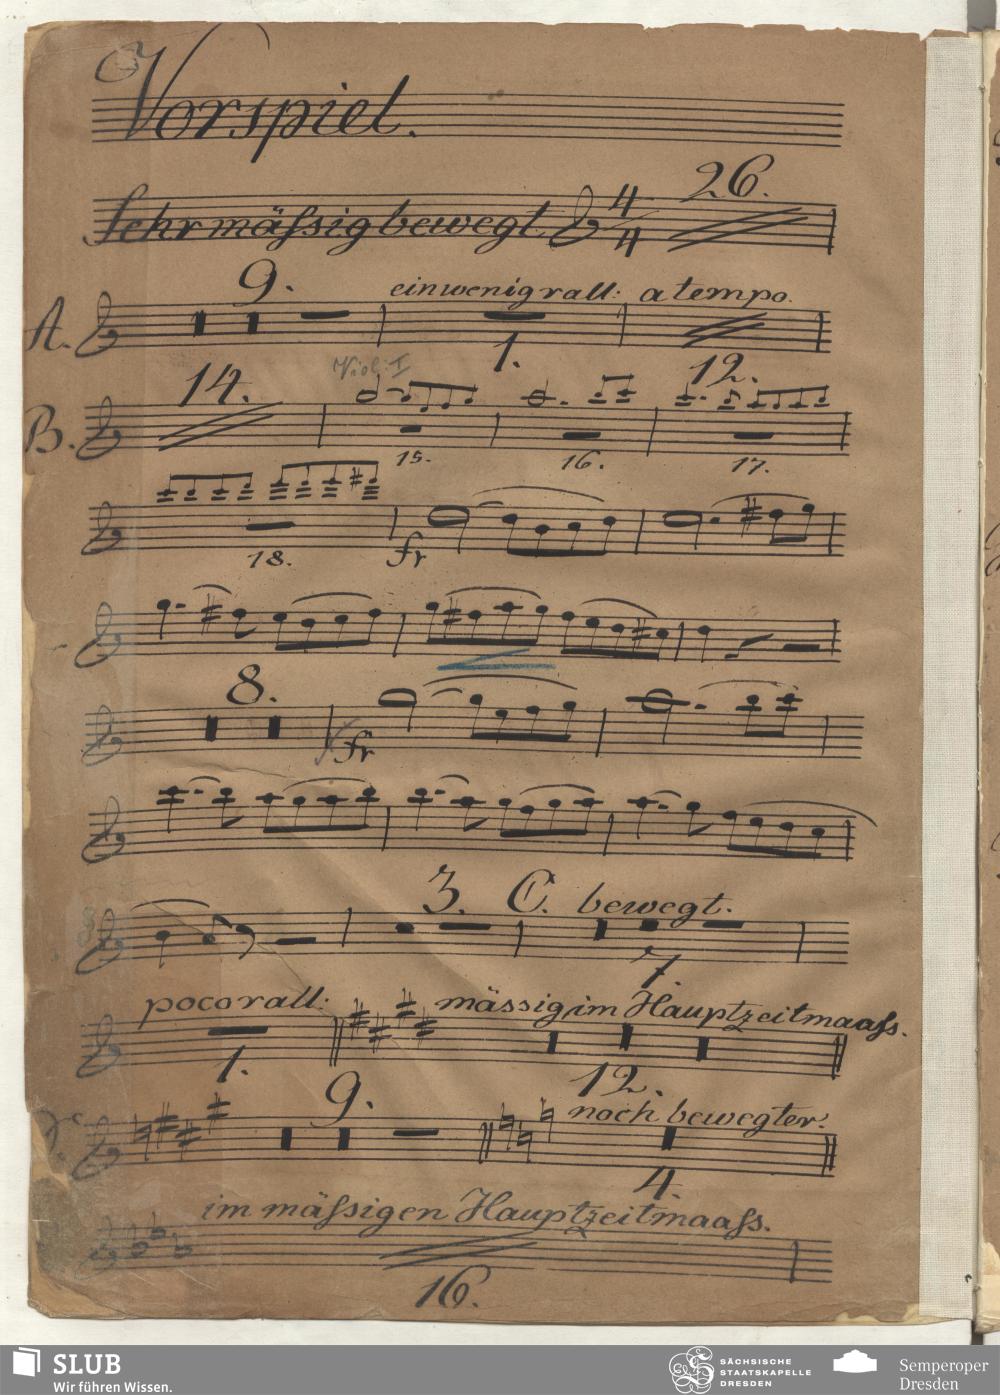 Vorspiel.
Sehr mässig bewegt 4/4 26.
9. ein wenig rall: a tempo.
A. 1. 12.
14. Viol: I
B. 15. 16. 17.
18. fr
8.
fr
3. C. bewegt.
7.
poco rall: mässig im Hauptzeitmaass.
1. 12.
9. noch bewegter.
4.
im mässigen Hauptzeitmaass.
16.
SLUB
Wir führen Wissen.
SÄCHSISCHE
STAATSKAPELLE
DRESDEN
Semperoper
Dresden